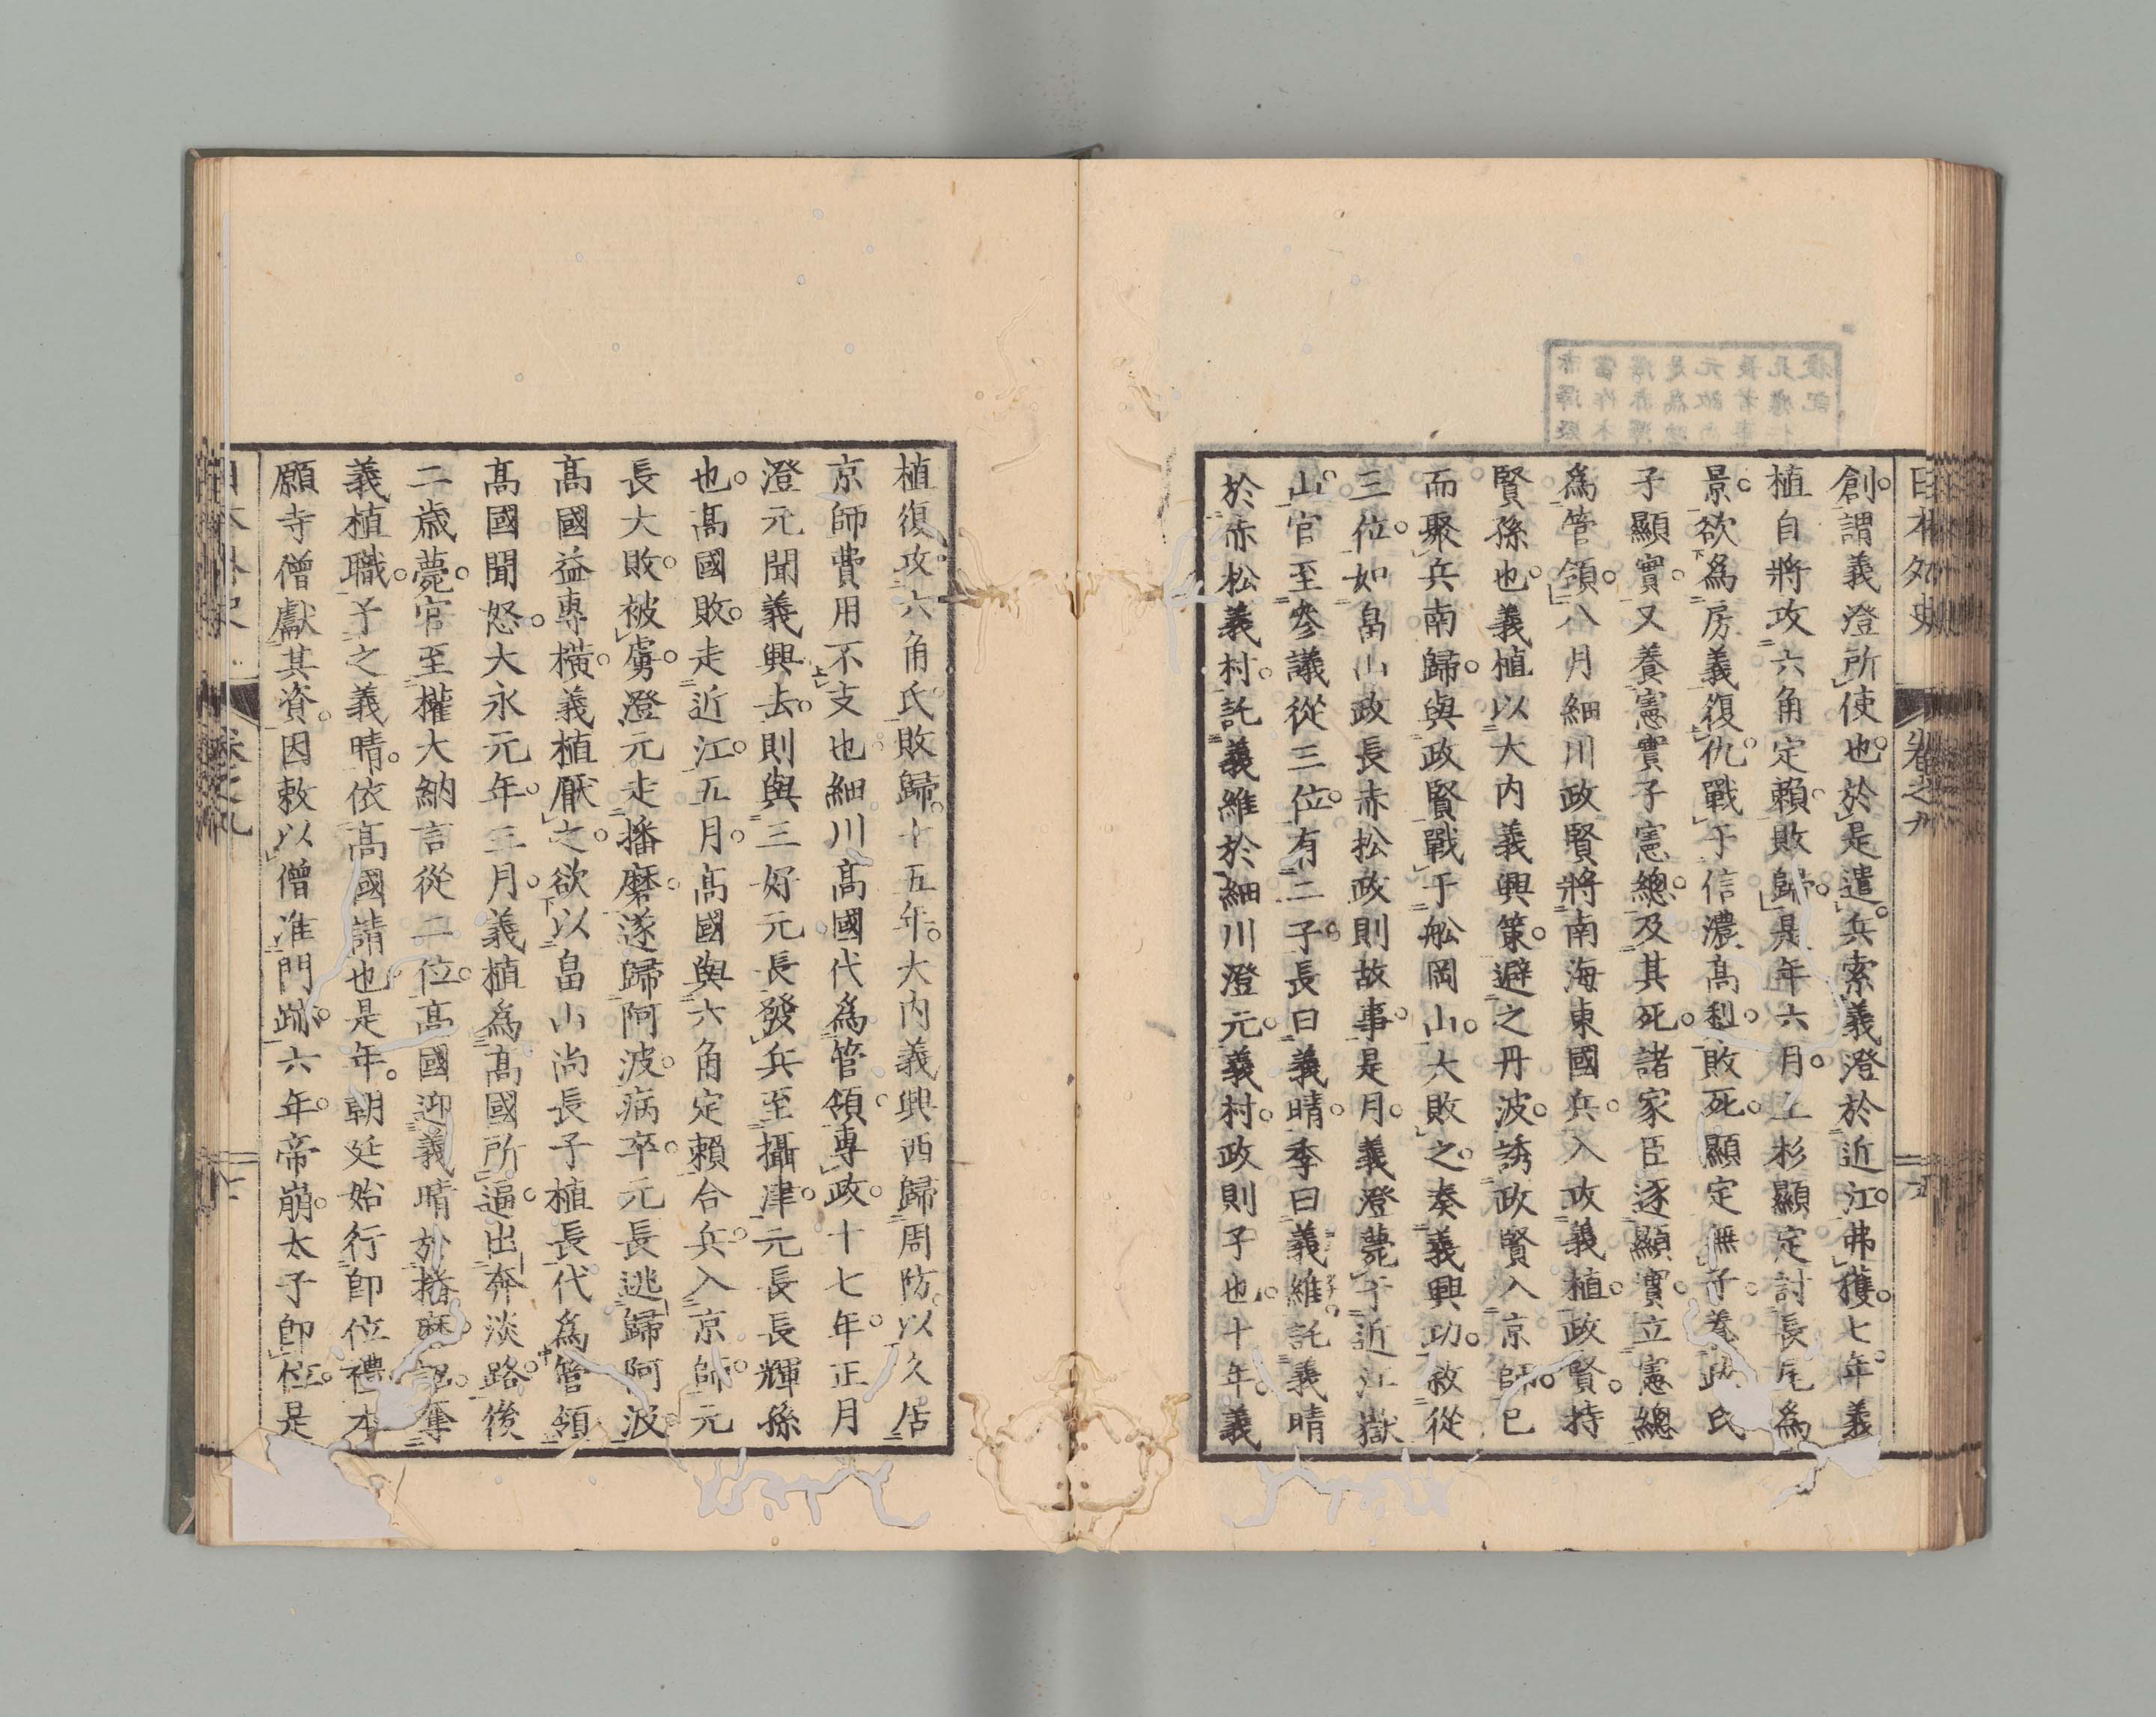 日本外史 卷之九
創。謂義澄所使也。於是遣兵索義澄於近江。弗獲。七年。義
植自將攻六角定賴。敗歸。是年六月。上杉顯定討長尾爲
景。欲爲房義復仇。戰于信濃高利。敗死。顯定無子。養政氏
子顯實。又養憲實子憲總。及其死。諸家臣逐顯實。立憲總
爲管領。八月細川政賢將南海東國兵。入攻義植。政賢。持
賢孫也。義植以大內義興策。避之丹波。誘政賢入京師。已
而聚兵南歸。與政賢戰于舩岡山。大敗之。奏義興功。敘從
三位。如畠山政長赤松政則故事。是月。義澄薨于近江嶽
山。官至參議從三位。有二子。長曰義晴。季曰義維。託義晴
於赤松義村。託義維於細川澄元。義村。政則子也。十年。義
植復攻六角氏。敗歸。十五年。大內義興西歸周防。以久居
京師費用不支也。細川高國代爲管領。專政。十七年。正月
澄元聞義興去。則與三好元長發兵至攝津。元長長輝孫
也。高國敗。走近江。五月。高國與六角定賴合兵。入京師。元
長大敗。被虜。澄元走播磨。遂歸阿波。病卒。元長逃歸阿波
高國益專橫。義植厭之。欲以畠山尚長子植長代爲管領
高國聞怒。大永元年。三月。義植爲高國所逼。出奔淡路。後
二歲薨。官至權大納言從二位。高國迎義晴於播磨。詔奪
義植職。予之義晴。依高國請也。是年。朝廷始行卽位禮。本
願寺僧獻其資。因敕以僧准門跡。六年。帝崩。太子卽位。是